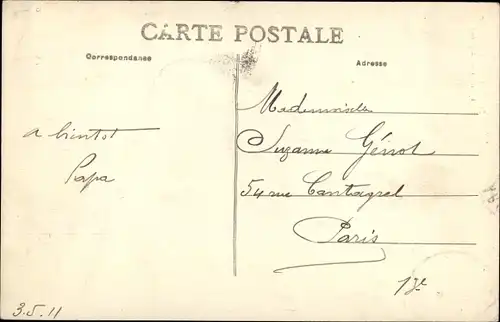 CARTE POSTALE
Correspondance
Adresse
a bientot
Papa
Mademoiselle
Suzanne Génot
54 rue Cantagrel
Paris
13e
3.5.11